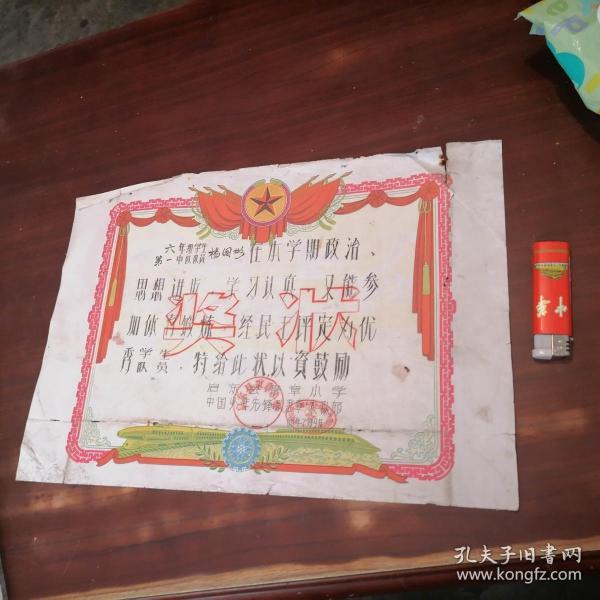 六年级学生
第一中队队员 杨国彬 在本学期政治、
思想进步、学习认真、又能参
加体育锻炼、经民主评定为优
秀学生
队员，特给此状以资鼓励
奖状
启东县 小学
中国少年先锋队
中华
孔夫子旧书网
www.kongfz.com